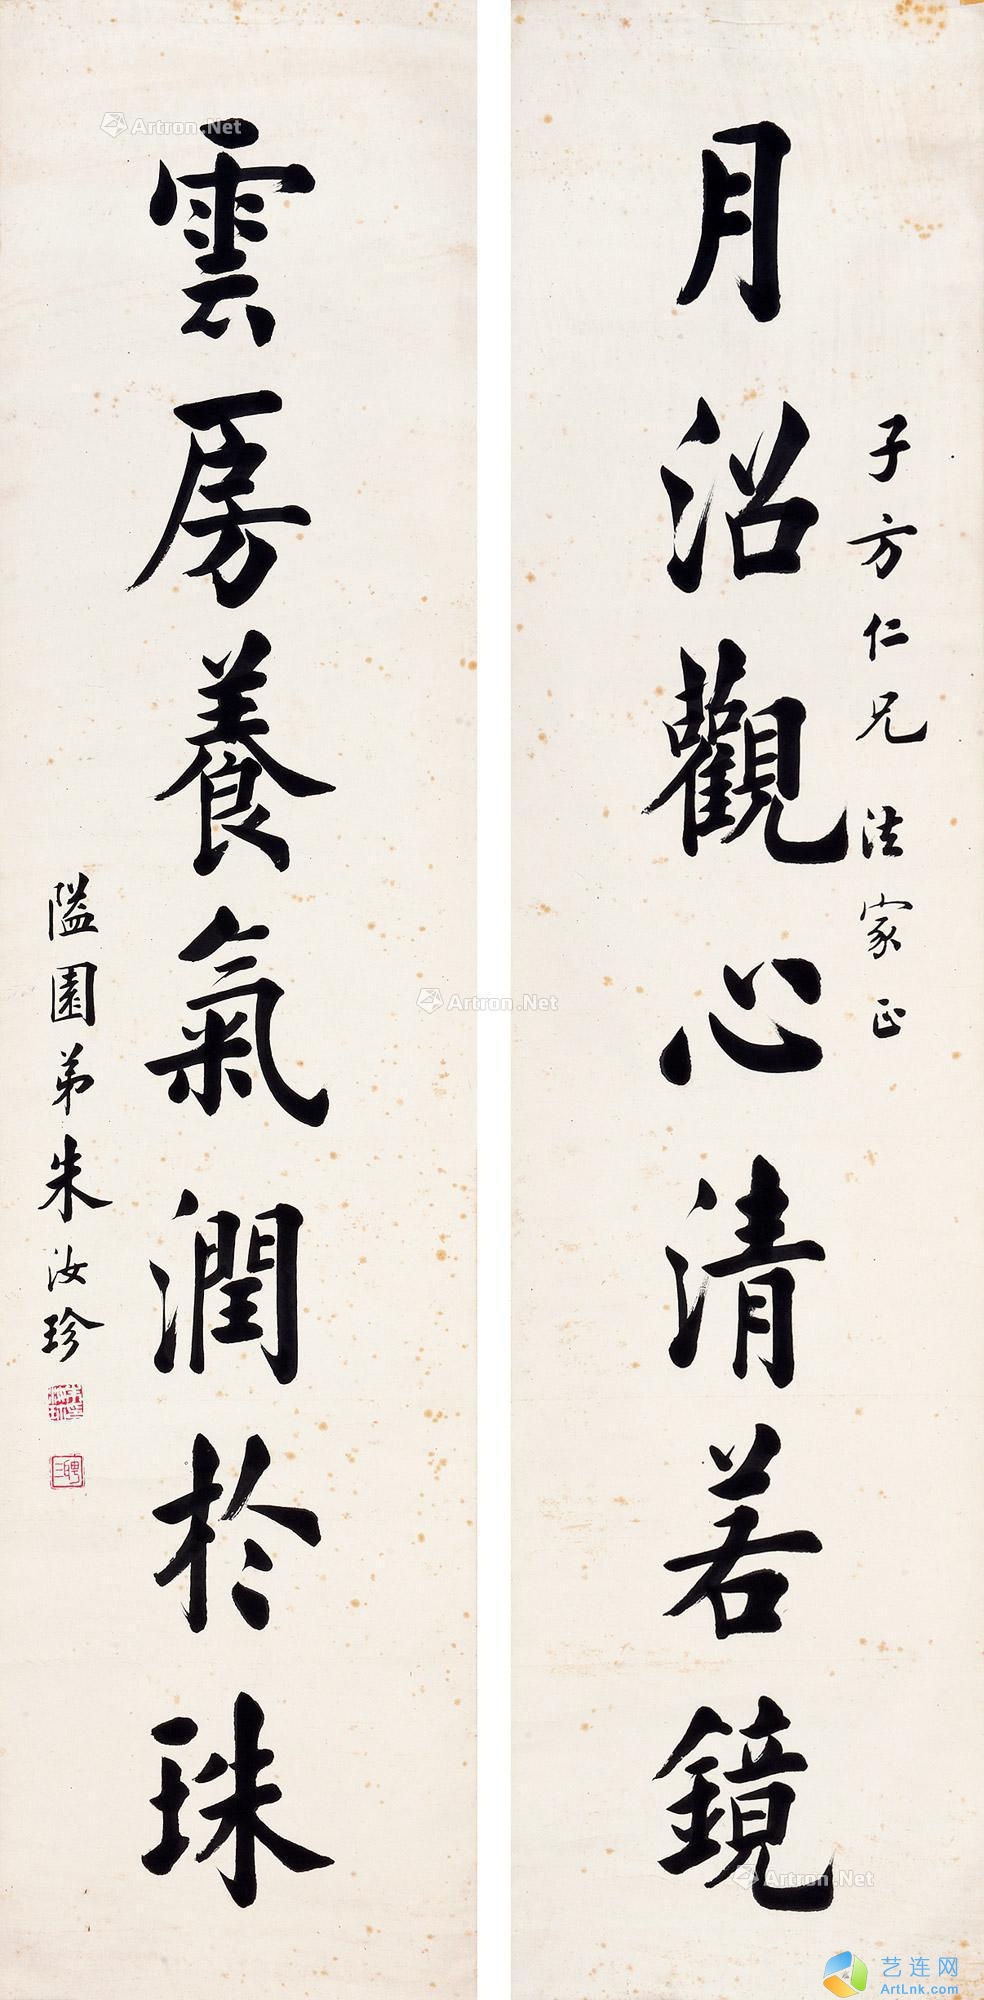 子方仁兄法家正
月沼觀心清若鏡
雲房養氣潤於珠
隘園弟朱汝珍
聘三
Artron.Net
Artron.Net
Artron.Net
艺连网
ArtLnk.com